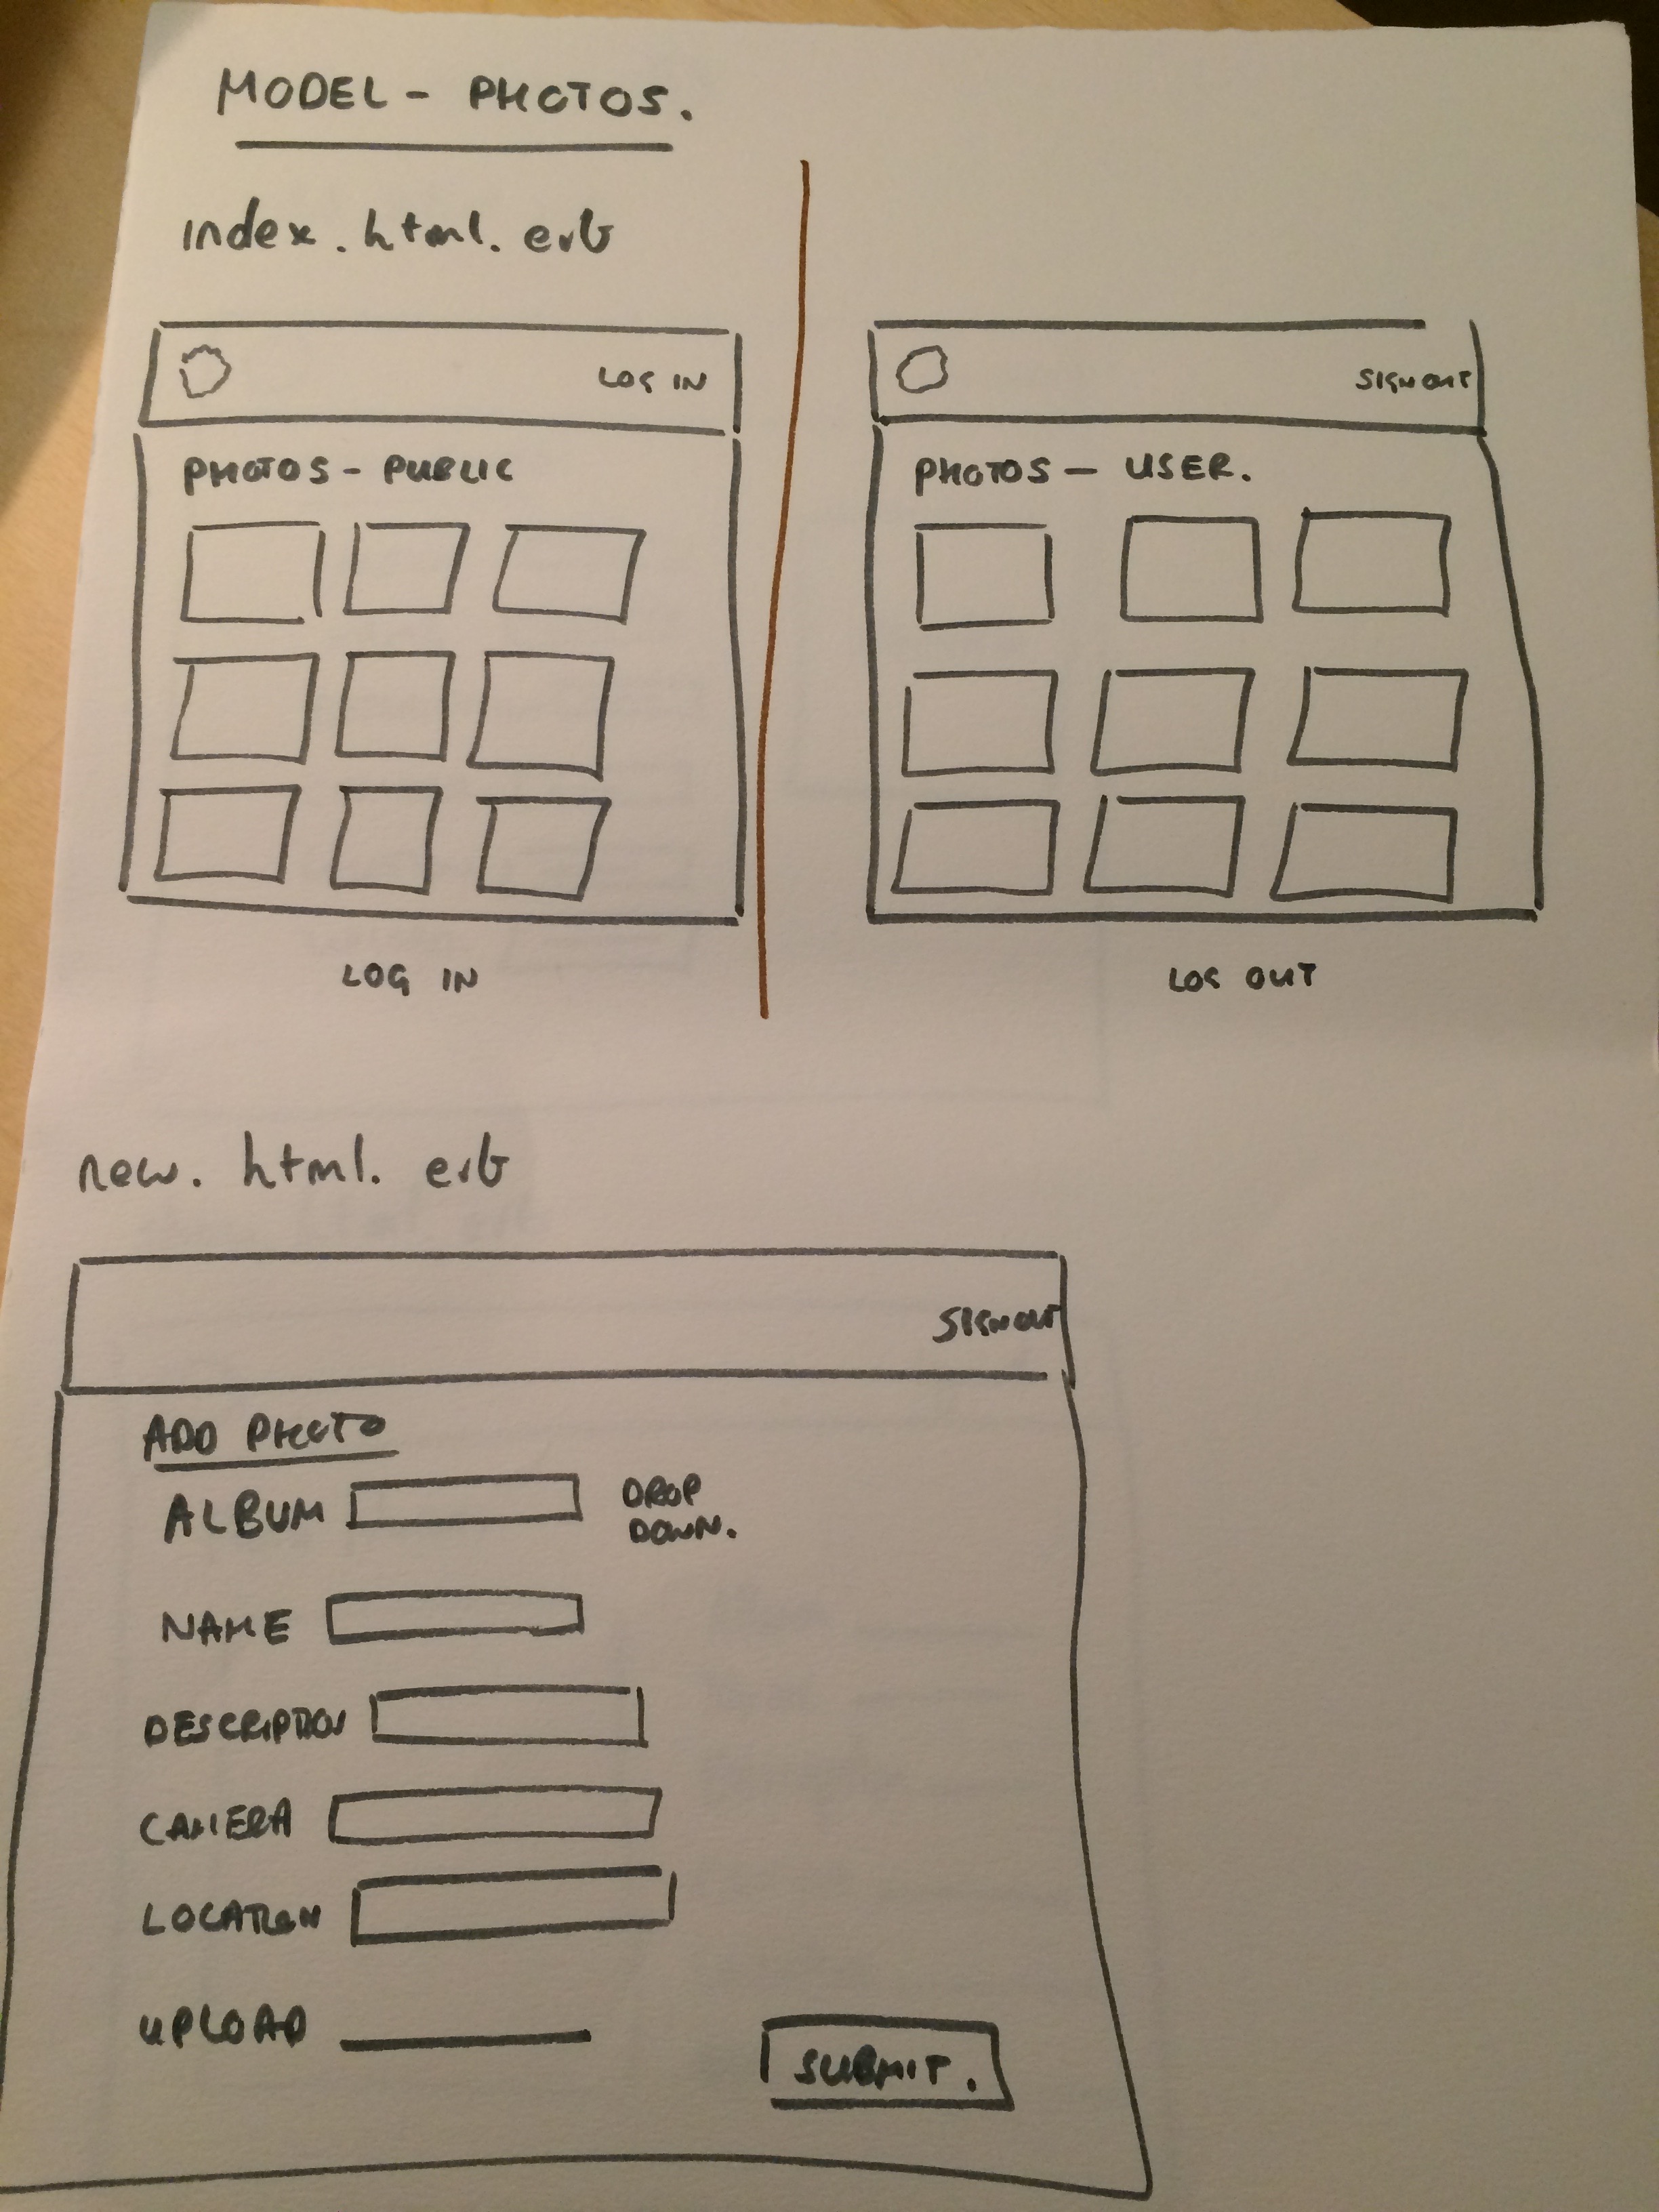 MODEL - PHOTOS.
index.html.erb
LOG IN
PHOTOS - PUBLIC
LOG IN
SIGN OUT
PHOTOS - USER.
LOG OUT
new.html.erb
SIGN OUT
ADD PHOTO
ALBUM
DROP
DOWN.
NAME
DESCRIPTION
CAMERA
LOCATION
UPLOAD
SUBMIT.